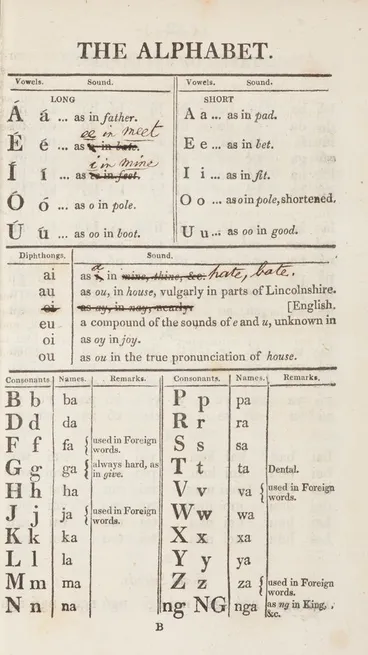 THE ALPHABET.
Vowels. Sound. Vowels. Sound.
LONG SHORT
Á á ... as in father. A a ... as in pad.
ee in meet
É é ... as in bate. E e ... as in bet.
i in mine
Í í ... as ee in feet. I i ... as in fit.
Ó ó ... as o in pole. O o ... as o in pole, shortened.
Ú ú ... as oo in boot. U u ... as oo in good.
Diphthongs. Sound.
ai as a in mine, thine, &c. hate, bate.
au as ou, in house, vulgarly in parts of Lincolnshire.
ei as ay, in nay, nearly. [English.
eu a compound of the sounds of e and u, unknown in
oi as oy in joy.
ou as ou in the true pronunciation of house.
Consonants Names. Remarks. Consonants. Names. Remarks.
B b ba P p pa
D d da R r ra
F f fa { used in Foreign words. S s sa
G g ga { always hard, as in give. T t ta Dental.
H h ha V v va { used in Foreign words.
J j ja { used in Foreign words. W w wa
K k ka X x xa
L l la Y y ya
M m ma Z z za { used in Foreign words.
N n na ng NG nga as ng in King, &c.
B